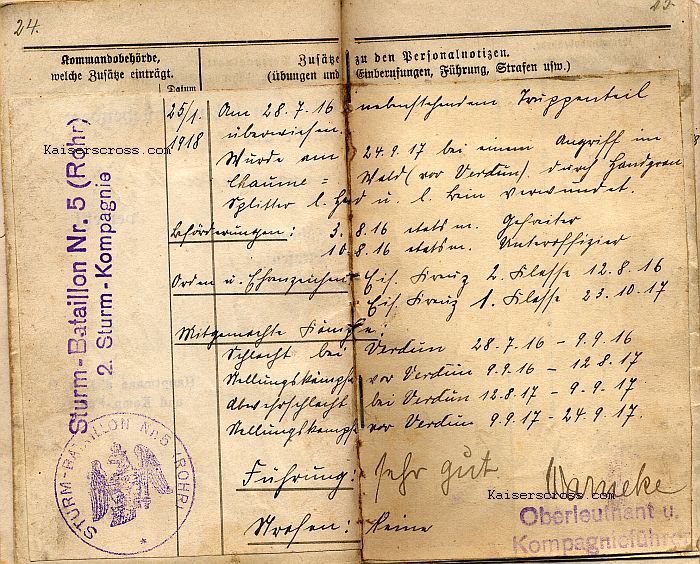 24.
25.
Kommandobehörde,
welche Zusätze einträgt.
Datum
Zusätze zu den Personalnotizen.
(Übungen und Einberufungen, Führung, Strafen usw.)
25/1. 1918
Am 28.7.16 nebenstehendem Truppenteil
überwiesen.
Wurde am 24.9.17 bei einem Angriff im
Chaume = Wald (vor Verdun) durch Handgran
Splitter l. Hand u. l. Bein verwundet.
Beförderungen: 3.8.16 etatsm. Gefreiter
10.8.16 etatsm. Unteroffizier
Orden u. Ehrenzeichen: Eis. Kreuz 2. Klasse 12.8.16
Eis. Kreuz 1. Klasse 23.10.17
Mitgemachte Kämpfe:
Schlacht bei Verdun 28.7.16 – 9.9.16
Stellungskämpfe vor Verdun 9.9.16 – 12.8.17
Abwehrschlacht bei Verdun 12.8.17 – 9.9.17.
Stellungskämpfe vor Verdun 9.9.17 – 24.9.17.
Führung: sehr gut
Strafen: keine
Warneke
Oberleutnant u.
Kompagnieführer
Sturm-Bataillon Nr. 5 (Rohr)
2. Sturm-Kompagnie
STURM-BATAILLON NR. 5 (ROHR)
Kaiserscross.com
Kaiserscross.com